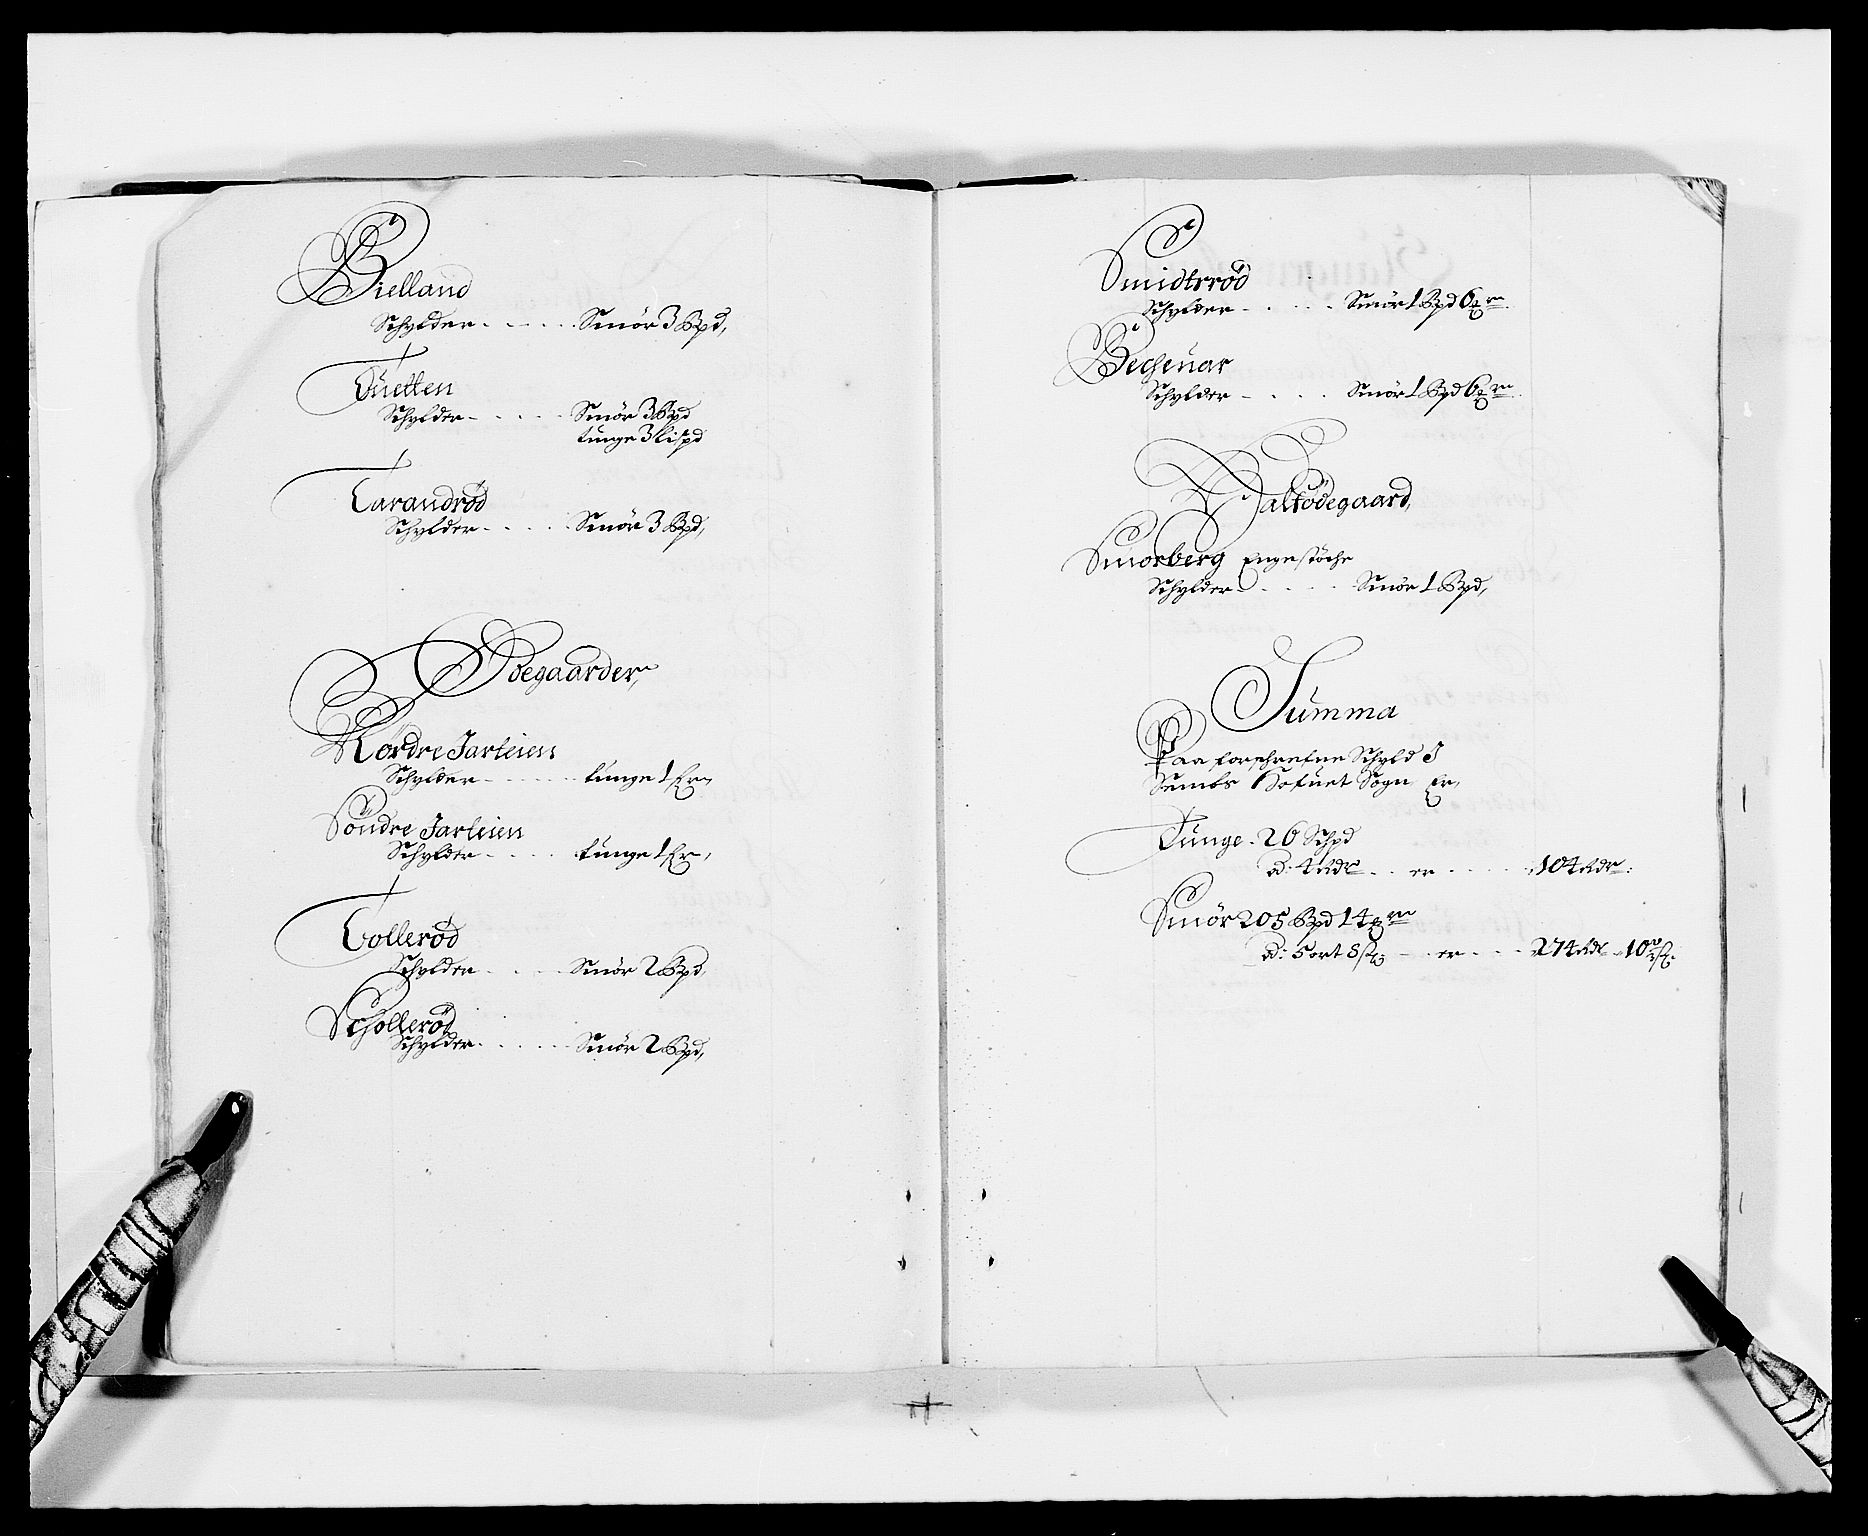 Bielland
Schylder - - - - - Smör 3 Bpd,
Tuetten
Schylder - - - - - Smör 3 Bpd
tunge 3 lispd
Tarandröd
Schylder - - - - - Smör 3 Bpd,
Ödegaarder,
Nordre Jarleien
Schylder - - - - - tunge 1
Söndre Jarleien
Schylder - - - - tunge 1
Tolleröd
Schylder - - - - Smör 2 Bpd,
Scholleröd
Schylder - - - - - Smör 2 Bpd,
Smidtröd
Schylder - - - - - Smör 1 Bpd 6
Bechenar
Schylder - - - - Smör 1 Bpd 6
Halfödegaard,
Smorberg Engestöche
Schylder - - - - - Smör 1 Bpd,
Summa
Paa forschrefne Schyld I
Sembs Hofuet Sogn Er,
Tunge - 26 Schpd
ad: 4 Rdr - - er - - - - 104 Rdr:
Smör 205 Bpd 14
ad: 5 ort 8 s - - er - - - 274 Rdr 10